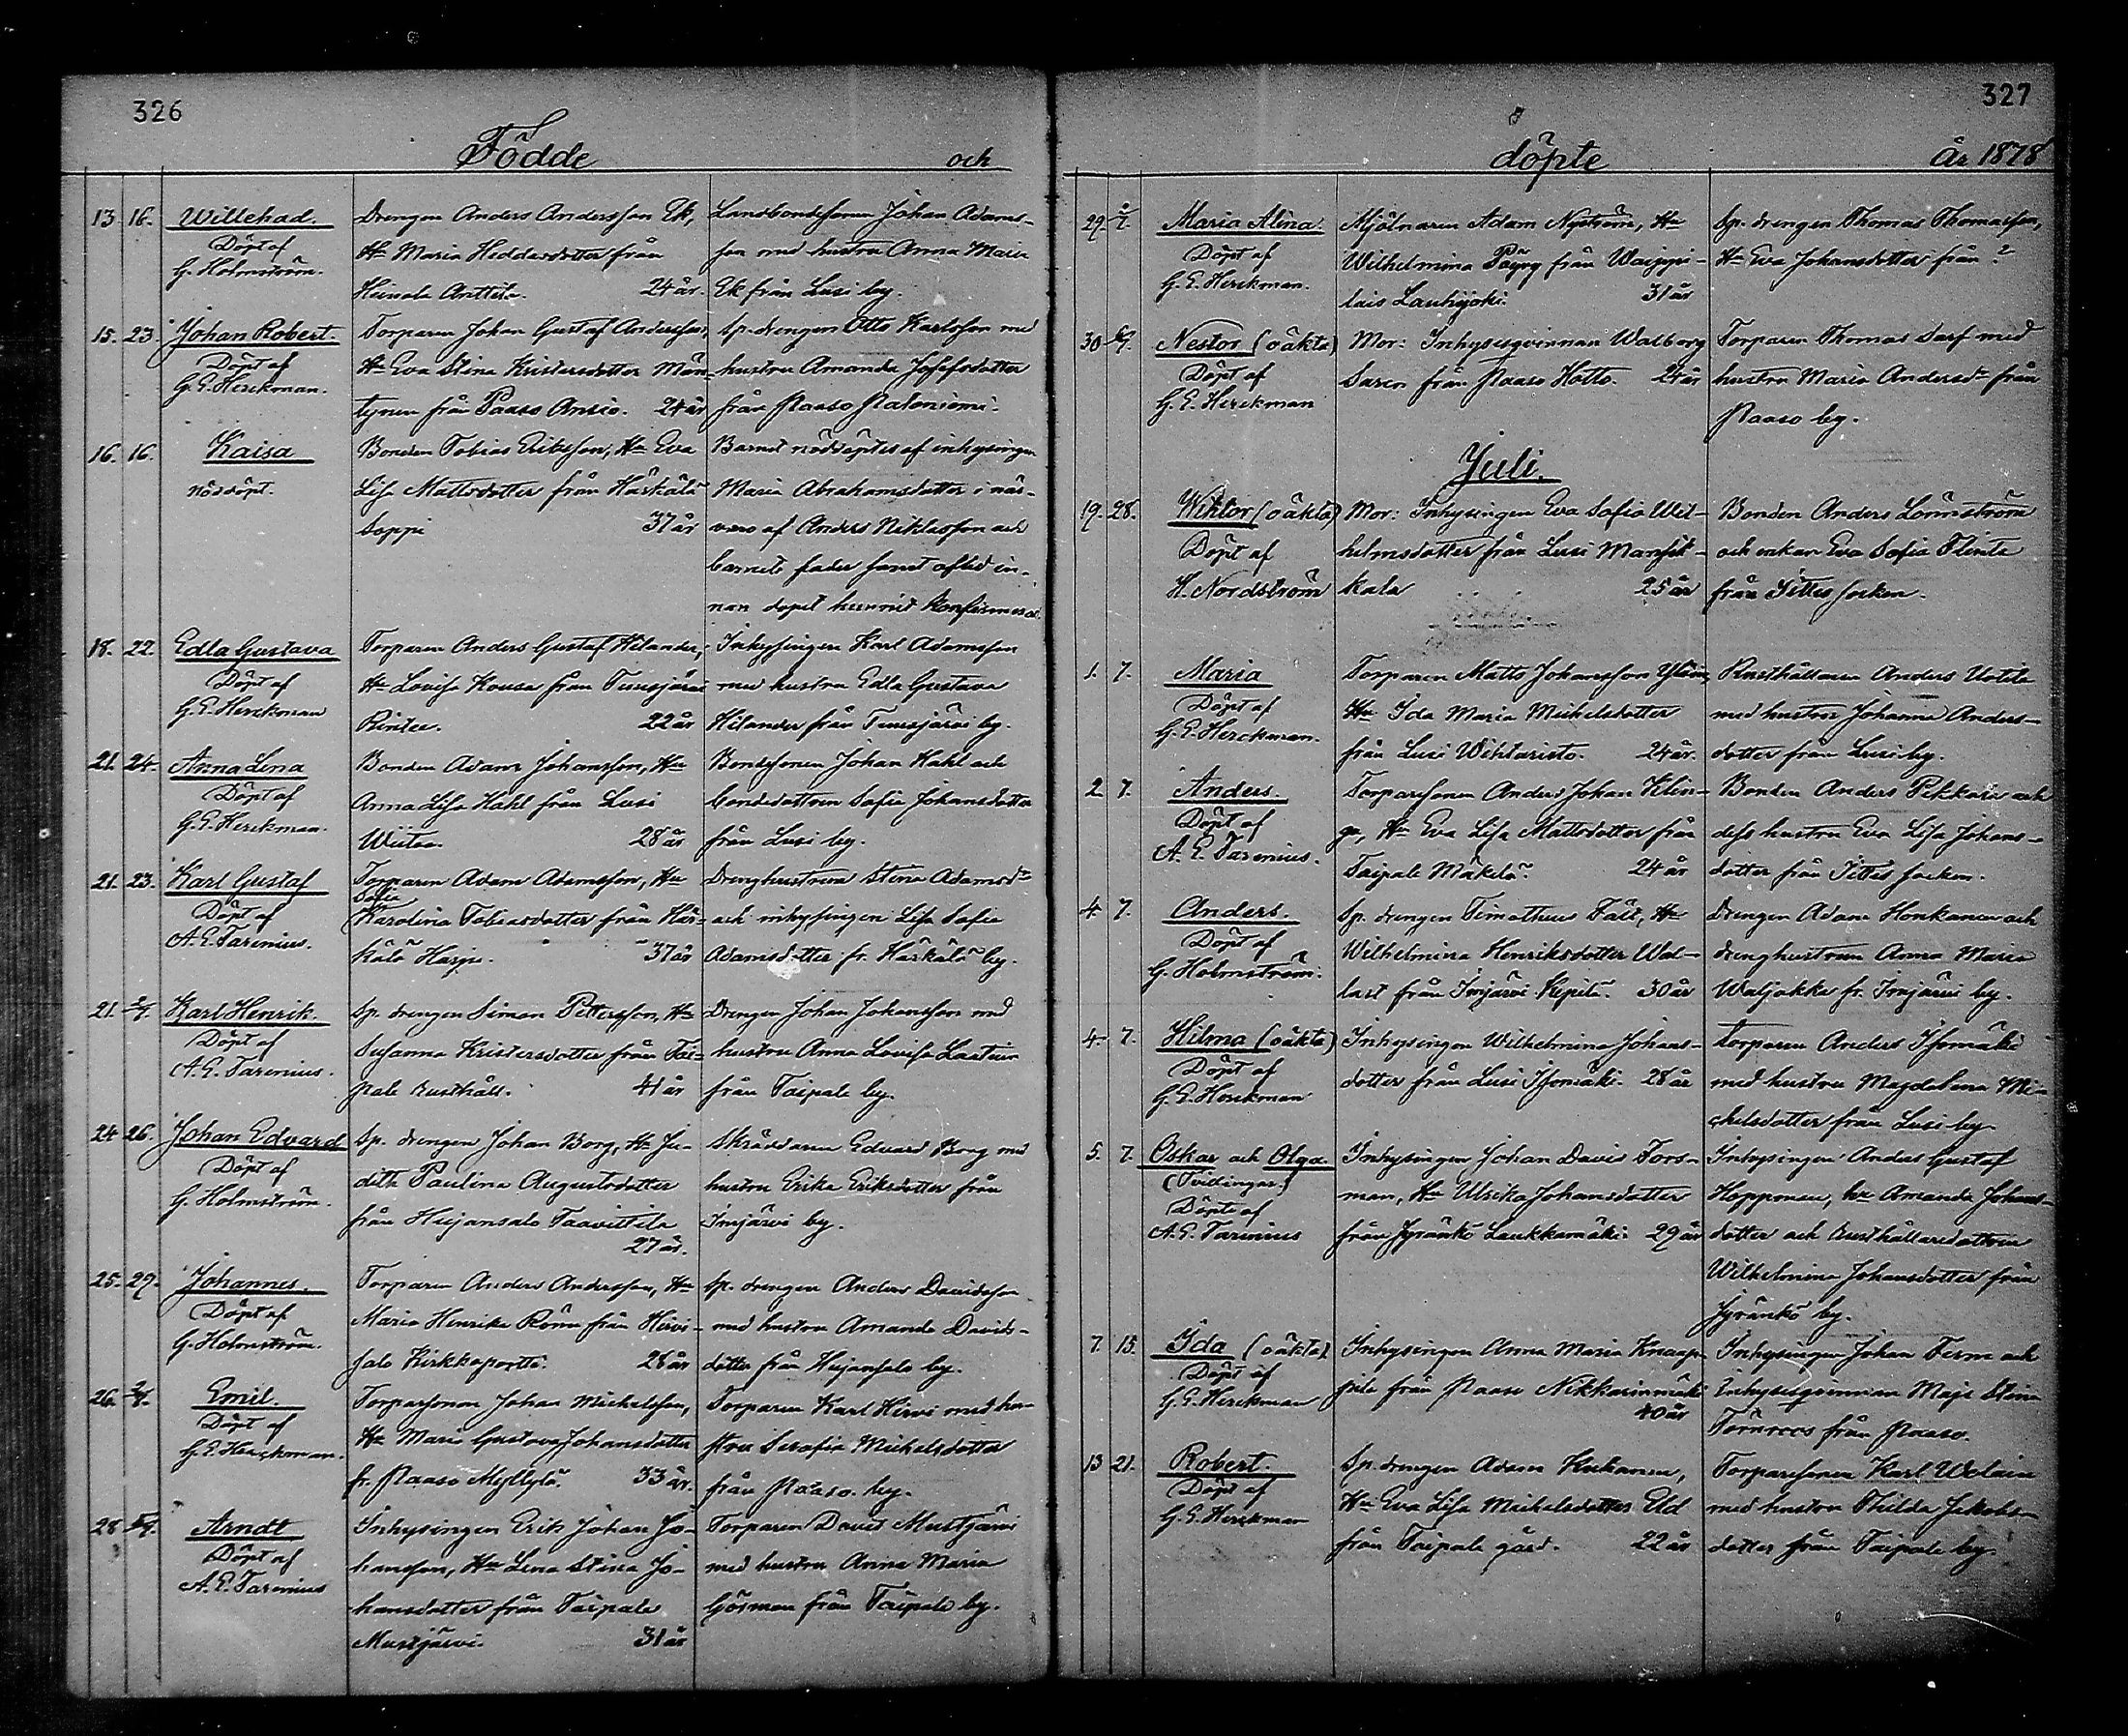 326
Födde och
13. 16. Willehad. Drengen Anders Andersson Ek, Landbondesonen Johan Adams-
Döpt af Hu Maria Heddasdotter från son med hustru Anna Maria
G. Holmström. Heinola Anttila. 24 år. Ek från Lusi by.
15. 23. Johan Robert. Torparen Johan Gustaf Andersson, Sp. drengen Otto Karlsson med
Döpt af Hu Eva Stina Kristersdotter Män- hustru Amanda Josefsdotter
G. E. Herckman. tynen från Paaso Ansio. 24 år från Paaso Paloniemi.
16. 16. Kaisa Bonden Tobias Eriksson, Hu Eva Barnet nöddöptes af inhysingen
nöddöpt. Lisa Mattsdotter från Härkälä Maria Abrahamsdotter i när-
Soppi 37 år varo af Anders Niklasson och
barnets fader samt afled in-
nan dopet hunnit konfirmeras.
18. 22. Edla Gustava Torparen Anders Gustaf Hilander, Inhysingen Karl Adamsson
Döpt af Hu Lovisa Kousa från Tuusjärvi med hustru Edla Gustava
G. E. Herckman Rintee. 22 år Hilander från Tuusjärvi by.
21. 24. Anna Lena Bonden Adam Johansson, Hu Bondesonen Johan Hahl och
Döpt af Anna Lisa Hahl från Lusi bondedottren Sofia Johansdotter
G. E. Herckman. 28 år från Lusi by.
21. 23. Karl Gustaf Torparen Adam Adamsson, Hu Drenghustrun Stina Adamsdr
Sofia
Döpt af Karolina Tobiasdotter från Här- och inhysingen Lisa Sofia
A. E. Tarenius. kälä Harju. 37 år Adamsdotter fr. Härkälä by.
21. 2/7. Karl Henrik. Sp. drengen Simon Pettersson, Hu Drengen Johan Johansson med
Döpt af Susanna Kristersdotter från Tai- hustru Anna Lovisa
A. E. Tarenius. pale rusthåll. 41 år från Taipale by.
24 26. Johan Edvard Sp. drengen Johan Borg, Hu Ju- Skräddaren Edvard Borg med
Döpt af dith Paulina Augustsdotter hustru Erika Eriksdotter från
G. Holmström. från Hujansalo Taavittila Imjärvi by.
27 år.
25. 29. Johannes. Torparen Anders Andersson, Hu Sp. drengen Anders Davidsson
Döpt af Maria Henrika Rönn från Hirvi- med hustru Amanda Davids-
G. Holmström. salo Kirkkoportti. 28 år dotter från Hujansalo by.
26. Emil. Torparsonen Johan Michelsson, Torparen Karl Hirvi med hu-
Döpt af Hu Maria Gustava Johansdotter stru Serafia Michelsdotter
G. E. Herckman. fr. Paaso Myllylä. 33 år. från Paaso by.
28 Arndt Inhysingen Erik Johan Jo- Torparen David Mustjärvi
Döpt af hansson, Hu Lena Stina Jo- med hustru Anna Maria
A. E. Tarenius hansdotter från Taipale Görman från Taipale by.
Mustjärvi. 31 år
327
döpte År 1878
29. 2/7. Maria Alina. Mjölnaren Adam Nyström, Hu Sp. drengen Thomas Thomasson,
Döpt af Wilhelmina Pöyry från Hu Eva Johansdotter från ?
G. E. Herckman. Lauhijoki. 31 år
30 Nestor (oäkta) Mor: Inhysesqvinnan Walborg Torparen Thomas Sarf med
Döpt af Saren från Paaso Hotto. 24 år hustru Maria Andersdr från
G. E. Herckman Paaso by.
Juli.
19. 28. Wiktor (oäkta) Mor: Inhysingen Eva Sofia Wil- Bonden Anders Lönnström
Döpt af helmsdotter från Lusi och enkan Eva Sofia Flinte
H. Nordström 25 år från Jittis socken.
1. 7. Maria Torparen Matts Johansson Rusthållaren Anders Uotila
Döpt af Hu Ida Maria Michelsdotter med hustru Johanna Anders-
G. E. Herckman. från Lusi Wihtaristo. 24 år. dotter från Lusi by.
2. 7. Anders. Torparsonen Anders Johan Klin- Bonden Anders Pekkola och
Döpt af ga, Hu Eva Lisa Mattsdotter från dess hustru Eva Lisa Johans-
A. E. Tarenius. Taipale Mäkelä. 24 år dotter från Jittis socken.
4. 7. Anders. Sp. drengen Timotheus Fält, Hu Drengen Adam Honkanen och
Döpt af Wilhelmina Henriksdotter Wal- drenghustrun Anna Maria
G. Holmström. last från Imjärvi Sepilä. 30 år Waljakka fr. Imjärvi by.
4. 7. Hilma (oäkta) Inhysingen Wilhelmina Johans- Torparen Anders Isomäki
Döpt af dotter från Lusi Isomäki. 28 år med hustru Magdalena Mi-
G. E. Herckman chelsdotter från Lusi by
5. 7. Oskar och Olga. Inhysingen Johan David Fors- Inhysingen Anders Gustaf
(Tvillingar)
Döpte af man, Hu Ulrika Johansdotter Hoppman, hu Amanda Johans-
A. E. Tarenius från Jyränkö Laukkamäki. 29 år dotter och rusthållaredottren
Wilhelmina Johansdotter från
Jyränkö by.
7. 15. Ida (oäkta) Inhysingen Anna Maria Knaap- Inhysingen Johan Ferm och
Döpt af pila från Paaso Nikkarinmäki Inhysesqvinnan Maja Stina
G. E. Herckman 40 år Törnroos från Paaso.
13 21. Robert. Sp. drengen Adam Kukonen, Torparesonen Karl Wolain
Döpt af Hu Eva Lisa Michelsdotter Eld med hustru Thilda Jakobs-
G. E. Herckman från Taipale gård. 22 år dotter från Taipale by.